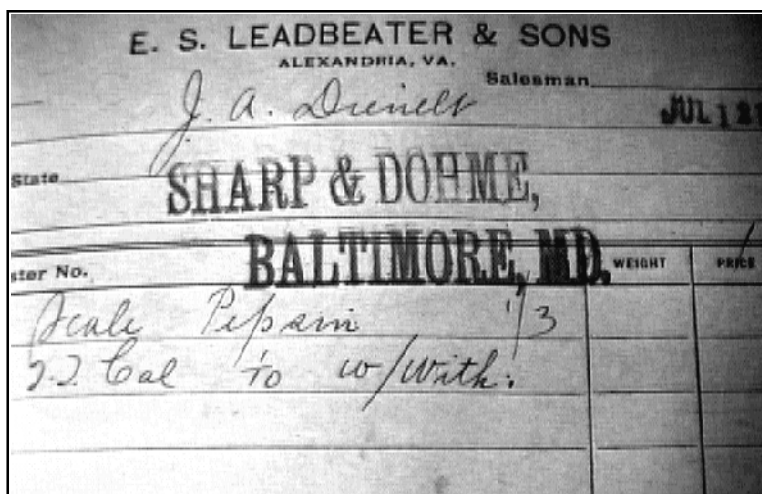 E. S. LEADBEATER & SONS
ALEXANDRIA, VA.
Salesman
J. A.
JUL 12
State
SHARP & DOHME,
BALTIMORE, MD.
ster No. WEIGHT PRICE
Scale Pepsin 1/3
Cal to w/With.